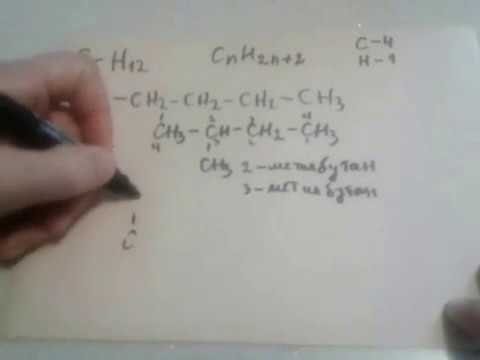 H12 CnH2n+2 C-4
H-1
-CH2-CH2-CH2-CH3
1 2 3 4
CH3-CH-CH2-CH3
4 3 2 1
CH3 2-метилбутан
3-метилбутан
1
C